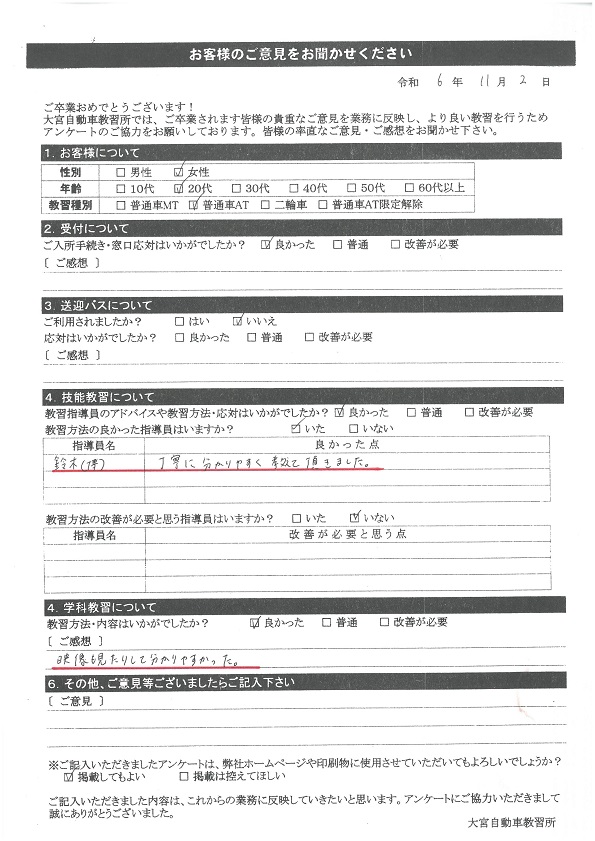 お客様のご意見をお聞かせください
令和 6 年 11 月 2 日
ご卒業おめでとうございます！
大宮自動車教習所では、ご卒業されます皆様の貴重なご意見を業務に反映し、より良い教習を行うため
アンケートのご協力をお願いしております。皆様の率直なご意見・ご感想をお聞かせ下さい。
1. お客様について
性別 □ 男性 ☑ 女性
年齢 □ 10代 ☑ 20代 □ 30代 □ 40代 □ 50代 □ 60代以上
教習種別 □ 普通車MT ☑ 普通車AT □ 二輪車 □ 普通車AT限定解除
2. 受付について
ご入所手続き・窓口応対はいかがでしたか？ ☑ 良かった □ 普通 □ 改善が必要
〔 ご感想 〕
3. 送迎バスについて
ご利用されましたか？ □ はい ☑ いいえ
応対はいかがでしたか？ □ 良かった □ 普通 □ 改善が必要
〔 ご感想 〕
4. 技能教習について
教習指導員のアドバイスや教習方法・応対はいかがでしたか？ ☑ 良かった □ 普通 □ 改善が必要
教習方法の良かった指導員はいますか？ ☑ いた □ いない
指導員名 良かった点
鈴木 丁寧に分かりやすく教えて頂きました。
教習方法の改善が必要と思う指導員はいますか？ □ いた ☑ いない
指導員名 改善が必要と思う点
4. 学科教習について
教習方法・内容はいかがでしたか？ ☑ 良かった □ 普通 □ 改善が必要
〔 ご感想 〕
映像も見たりして分かりやすかった。
6. その他、ご意見等ございましたらご記入下さい
〔 ご意見 〕
※ご記入いただきましたアンケートは、弊社ホームページや印刷物に使用させていただいてもよろしいでしょうか？
☑ 掲載してもよい □ 掲載は控えてほしい
ご記入いただきました内容は、これからの業務に反映していきたいと思います。アンケートにご協力いただきまして
誠にありがとうございました。
大宮自動車教習所